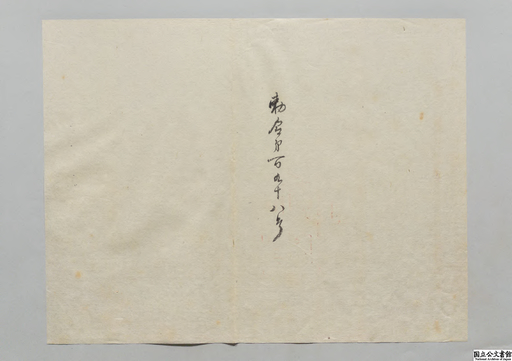 勅令第百九十八号
国立公文書館
National Archives of Japan